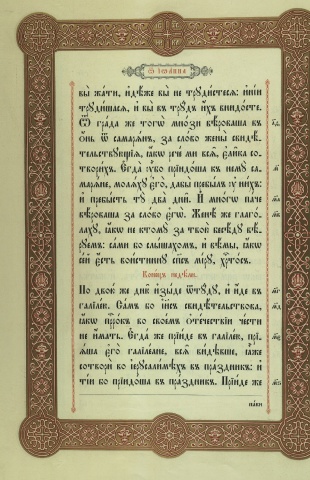 Ѿ іѡа́нна
вы̀ жа́ти, и҆дѣ́же вы̀ не трꙋди́стесѧ: и҆ні́и
трꙋди́шасѧ, и҆ вы̀ въ трꙋ́дъ и҆́хъ внидо́сте.
Ѿ гра́да же тогѡ̀ мно́зи вѣ́роваша въ
ѻ҆́нь ѿ самарѧ̑нъ, за сло́во жены̀ свидѣ́-
тельствꙋющїѧ, ꙗ҆́кѡ речѐ мѝ всѧ̑, є҆ли̑ка со-
твори́хъ. Є҆гда̀ ᲂу҆̀бо прїидо́ша къ немꙋ̀ са-
марѧ́не, молѧ́хꙋ є҆го̀, дабы̀ пребы́лъ ᲂу҆ ни́хъ:
и҆ пребы́сть тꙋ̀ два̀ дни̑. И҆ мно́гѡ па́че
вѣ́роваша за сло́во є҆гѡ̀. Женѣ́ же глаго́-
лахꙋ, ꙗ҆́кѡ не ктомꙋ̀ за твою̀ бесѣ́дꙋ вѣ́-
рꙋемъ: са́ми бо слы́шахомъ, и҆ вѣ́мы, ꙗ҆́кѡ
се́й є҆́сть вои́стиннꙋ сп҃съ мі́рꙋ, хрⷭ҇то́съ.
Коне́цъ недѣ́ли.
По двою́ же дню̑ и҆зы́де ѿтꙋ́дꙋ, и҆ и҆́де въ
галїле́ю. Са́мъ бо і҆и҃съ свидѣ́тельствова,
ꙗ҆́кѡ прⷪ҇ро́къ во свое́мъ ѻ҆те́чествїи че́сти
не и҆́мать. Є҆гда́ же прїи́де въ галїле́ю, прїѧ́-
ша є҆го̀ галїле́ане, всѧ̑ ви́дѣвше, ꙗ҆̀же
сотворѝ во і҆ерⷭ҇али́мѣхъ въ пра́здникъ: и҆
ті́и бо прїидо́ша въ пра́здникъ. Прїи́де же
па́ки